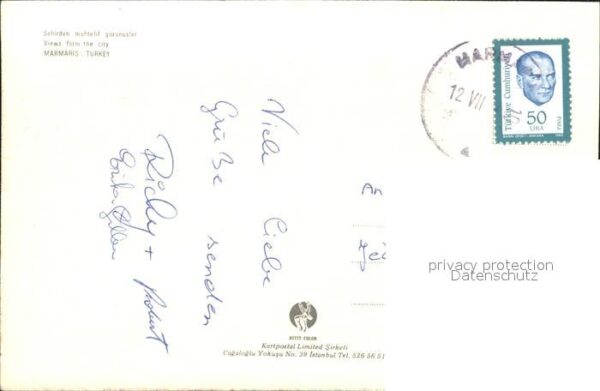 Şehirden muhtelif görünüşler
Views form the city
MARMARIS - TURKEY
Viele liebe
Grüße senden
Richy + Robert
MARM
12 VII
Türkiye Cumhuriyeti
50
LIRA
Posta
An
privacy protection
Datenschutz
KEYİF COLOR
Kartpostal Limited Şirketi
Cağaloğlu Yokuşu No. 39 İstanbul Tel. 526 56 51